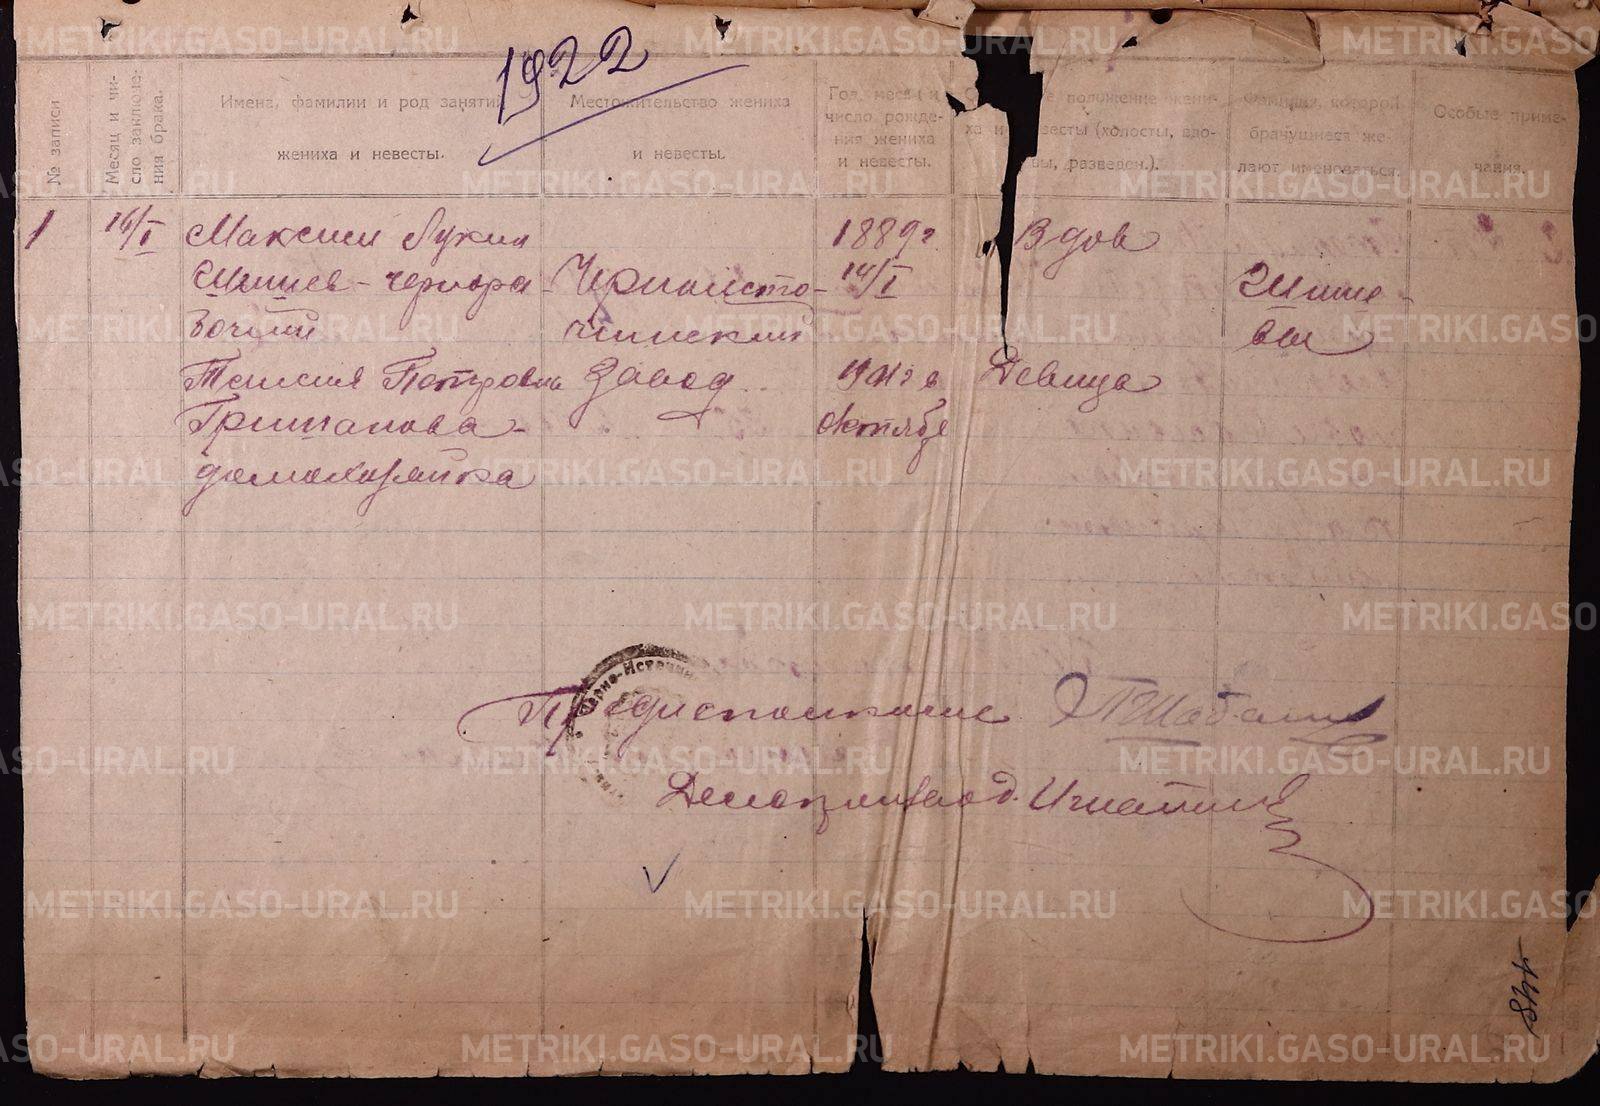 1922
№ записи
Месяц и чи-
сло заключе-
ния брака.
Имена, фамилии и род занятий
жениха и невесты.
Местожительство жениха
и невесты.
Год, месяц и
число рожде-
ния жениха
и невесты.
е положение жени-
ха и невесты (холосты, вдо-
вы, разведен.).
Фамилия, которой
брачущиеся же-
лают именоваться.
Особые приме-
чания.
1
16/I
Максим Лукич
Шишев - чернора-
бочий
Таисия Петровна
Гришанова -
домохозяйка
Черноисто-
чинский
завод
1889 г.
14/I
октябр
Вдов
Девица
Шише-
вы
Черно-Источин
Предисполкома Шабалин
Делопроизвод. Игнатьев
448
METRIKI.GASO-URAL.RU